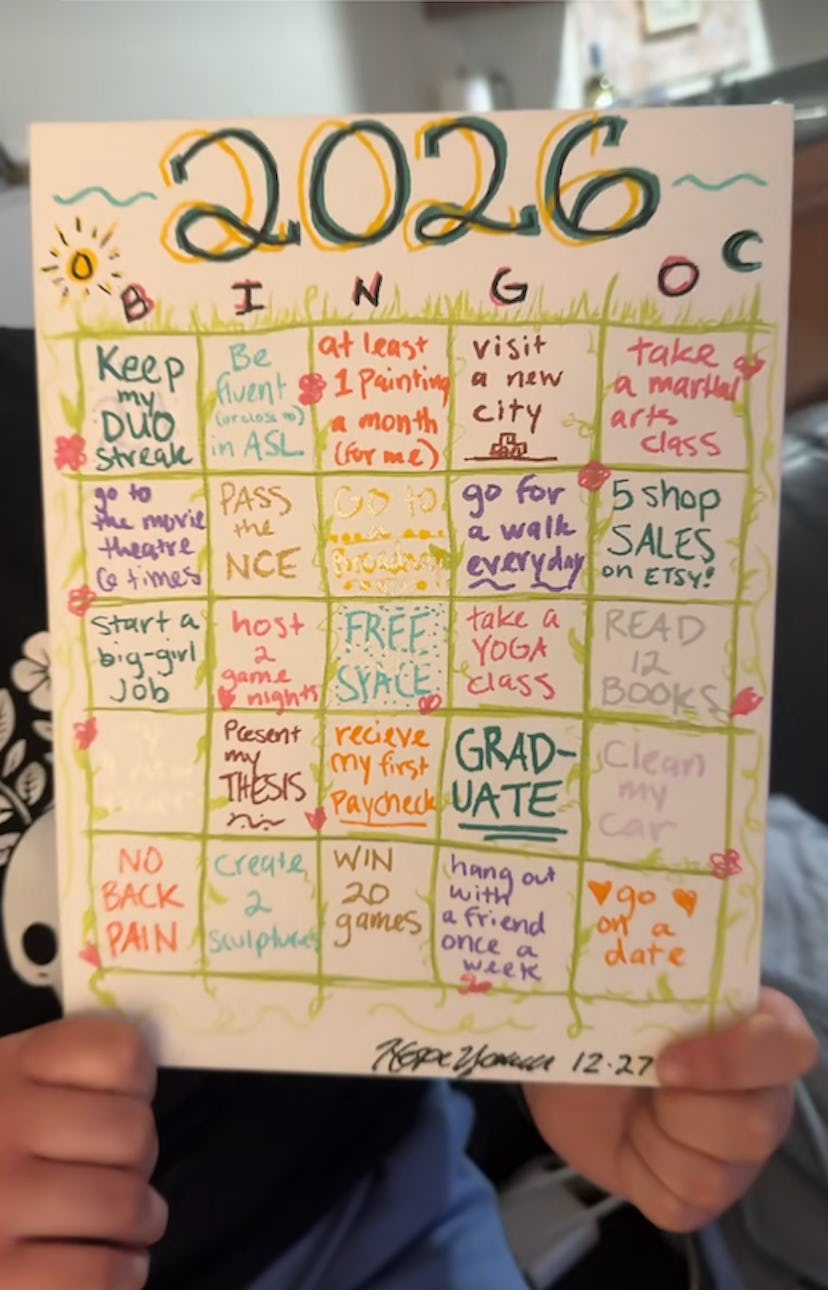 2026
B I N G O
Keep
my
DUO
streak
Be
fluent
(or close to)
in ASL
at least
1 Painting
a month
(for me)
visit
a new
city
take
a martial
arts
class
go to
the movie
theatre
6 times
PASS
the
NCE
GO to
Broadway
go for
a walk
everyday
5 shop
SALES
on ETSY!
Start a
big-girl
Job
host
2
game
nights
FREE
SPACE
take a
YOGA
class
READ
12
BOOKS
Present
my
THESIS
recieve
my first
Paycheck
GRAD-
UATE
Clean
my
car
NO
BACK
PAIN
Create
2
sculptures
WIN
20
games
hang out
with
a friend
once a
week
go
on a
date
Hope 12.27